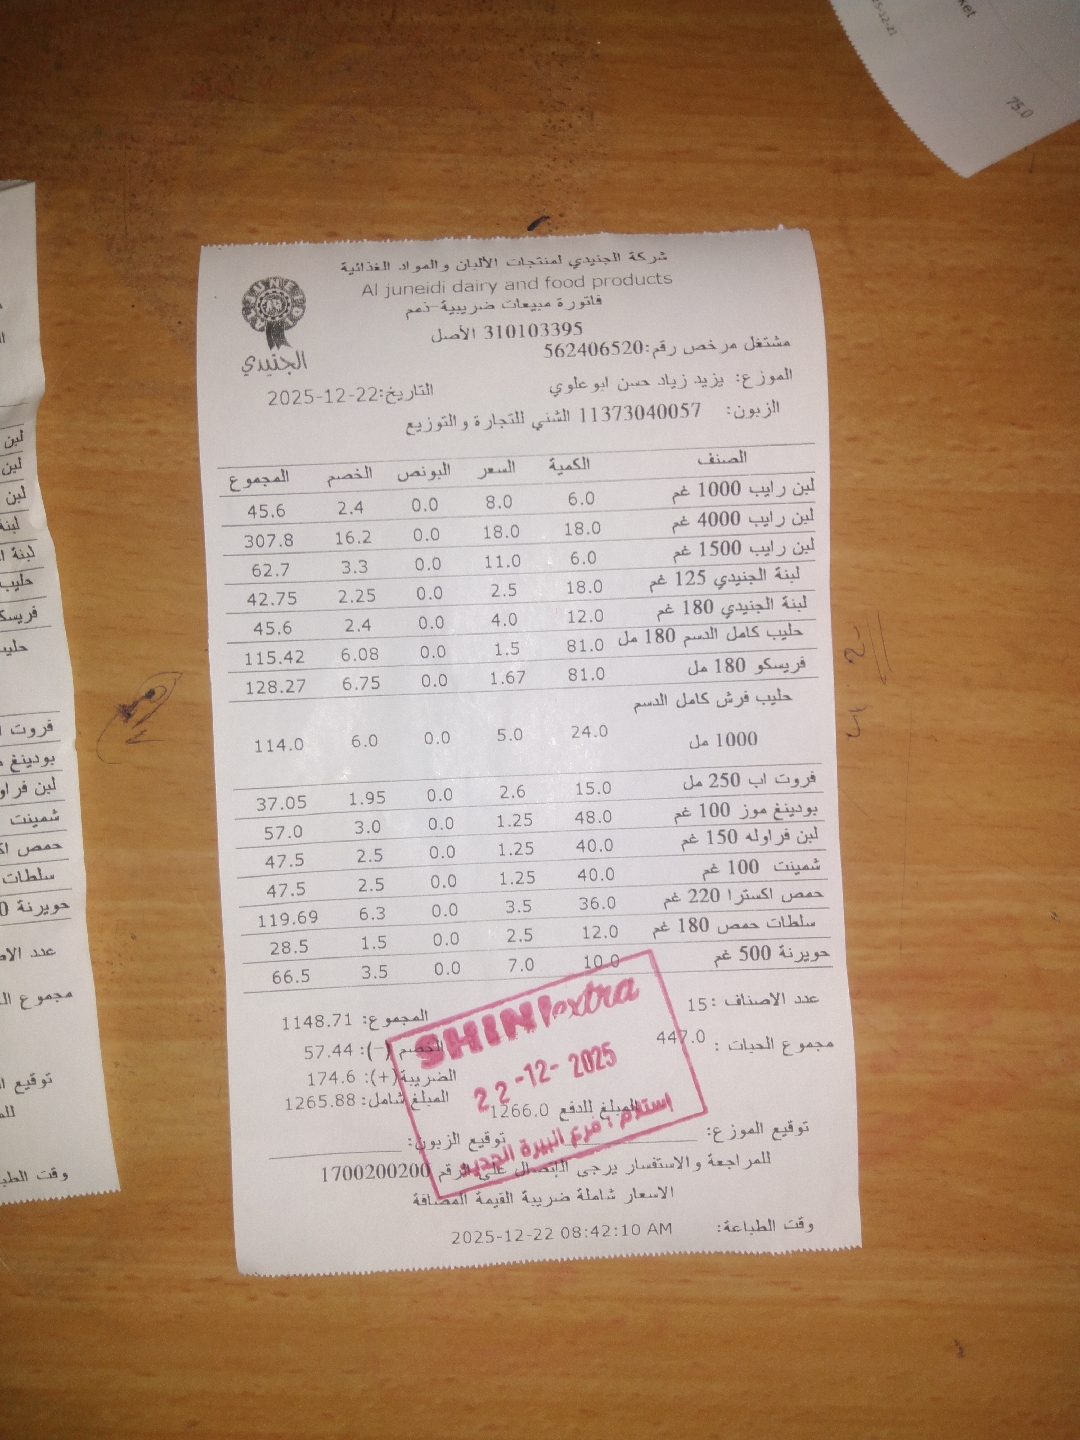 شركة الجنيدي لمنتجات الألبان و المواد الغذائية
Al juneidi dairy and food products
فاتورة مبيعات ضريبية-ذمم
310103395 الأصل
JUNEIDI
الجنيدي
مشتغل مرخص رقم:562406520
الموزع: يزيد زياد حسن ابو علوي التاريخ:2025-12-22
الزبون: 11373040057 الشني للتجارة و التوزيع
الصنف الكمية السعر البونص الخصم المجموع
لبن رايب 1000 غم 6.0 8.0 0.0 2.4 45.6
لبن رايب 4000 غم 18.0 18.0 0.0 16.2 307.8
لبن رايب 1500 غم 6.0 11.0 0.0 3.3 62.7
لبنة الجنيدي 125 غم 18.0 2.5 0.0 2.25 42.75
لبنة الجنيدي 180 غم 12.0 4.0 0.0 2.4 45.6
حليب كامل الدسم 180 مل 81.0 1.5 0.0 6.08 115.42
فريسكو 180 مل 81.0 1.67 0.0 6.75 128.27
حليب فرش كامل الدسم
1000 مل 24.0 5.0 0.0 6.0 114.0
فروت اب 250 مل 15.0 2.6 0.0 1.95 37.05
بودينغ موز 100 غم 48.0 1.25 0.0 3.0 57.0
لبن فراوله 150 غم 40.0 1.25 0.0 2.5 47.5
شمينت 100 غم 40.0 1.25 0.0 2.5 47.5
حمص اكسترا 220 غم 36.0 3.5 0.0 6.3 119.69
سلطات حمص 180 غم 12.0 2.5 0.0 1.5 28.5
حويرنة 500 غم 10.0 7.0 0.0 3.5 66.5
عدد الاصناف :15 المجموع: 1148.71
مجموع الحبات : 447.0 الخصم (-): 57.44
الضريبة(+): 174.6
المبلغ شامل: 1265.88
المبلغ للدفع 1266.0
توقيع الموزع: توقيع الزبون:
للمراجعة و الاستفسار يرجى الاتصال على الرقم 1700200200
الاسعار شاملة ضريبة القيمة المضافة
وقت الطباعة: 2025-12-22 08:42:10 AM
SHINI extra
22-12-2025
استلام : فرع البيرة الجديد
75.0
لبن
لبن
لبن
لبنة
لبنة
حليب
حليب
فروت
بودينغ
لبن فراو
شمينت
حمص
سلطات
حويرنة
توقيع